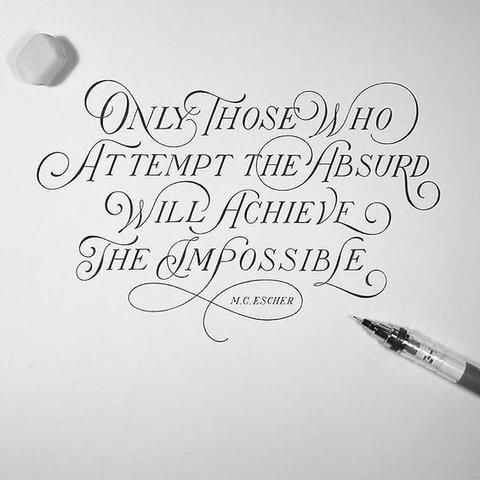 Only Those Who
Attempt the Absurd
Will Achieve
The Impossible
M.C. Escher